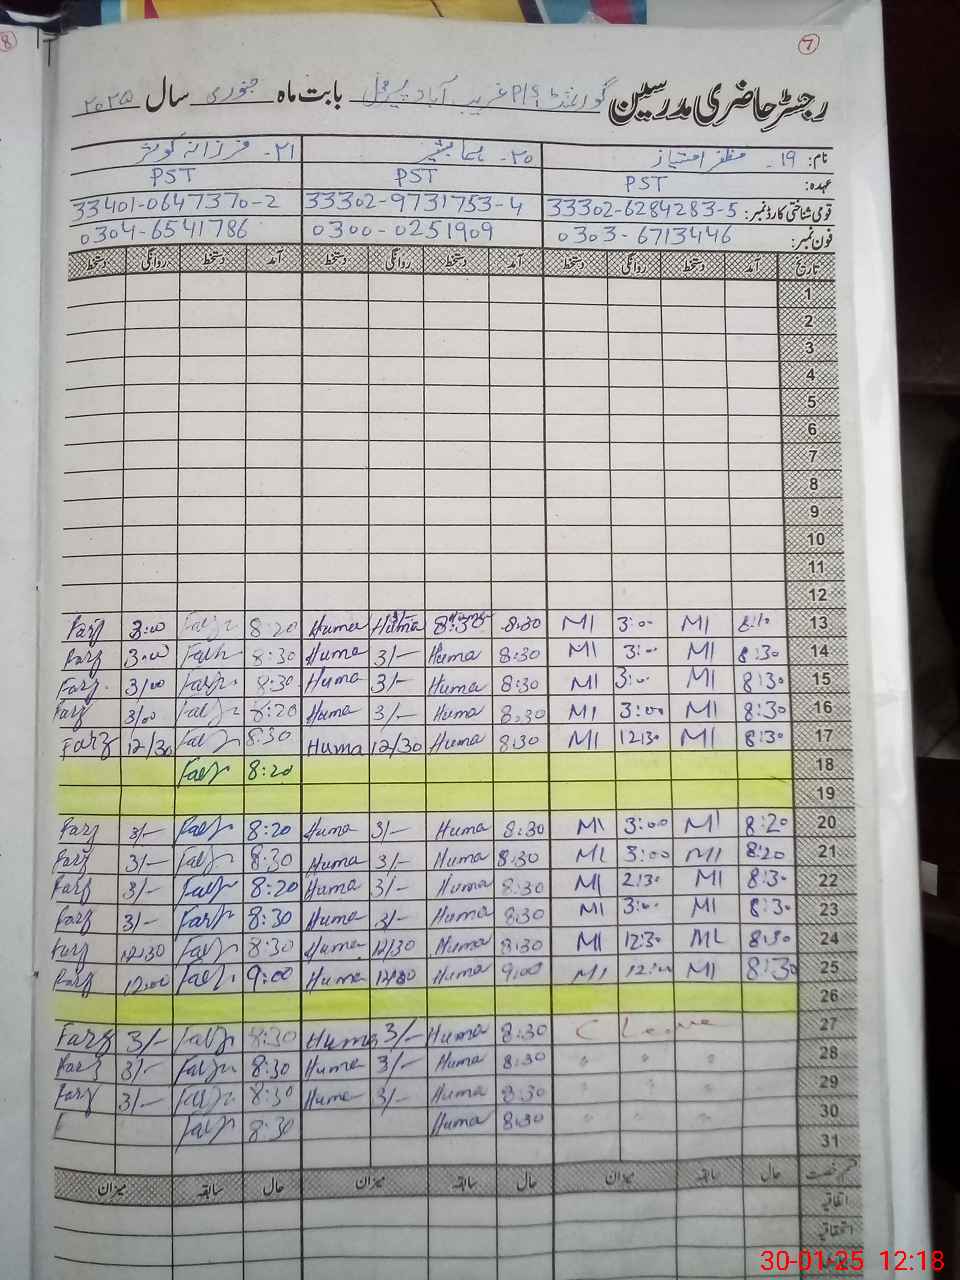 8
7
رجسٹر حاضری مدرسین گورنمنٹ P/S غریب آباد پیر محل بابت ماہ جنوری سال ۲۰۲۵
نام: ۱۹۔ مظفر امتیاز ۲۰۔ ہما بشیر ۲۱۔ فرزانہ کوثر
عہدہ: PST PST PST
قومی شناختی کارڈ نمبر: 33302-6284283-5 33302-9731753-4 33401-0647370-2
فون نمبر: 0303-6713446 0300-0251909 0304-6541786
تاریخ آمد دستخط روانگی دستخط آمد دستخط روانگی دستخط آمد دستخط روانگی دستخط
1
2
3
4
5
6
7
8
9
10
11
12
13 M1 3:00 M1 8:30 Huma Huma 8:20 3:00 Farz
14 8:30 M1 3:00 M1 8:30 Huma 3/- Huma 8:30 3:00 Farz
15 8:30 M1 3:00 M1 8:30 Huma 3/- Huma 8:30 3/00 Farz
16 8:30 M1 3:00 M1 8:30 Huma 3/- Huma 8:20 3/00 Farz
17 8:30 M1 12:30 M1 8:30 Huma 12/30 Huma 8:30 12/30 Farz
18 8:20
19
20 8:20 M1 3:00 M1 8:30 Huma 3/- Huma 8:20 3/- Farz
21 8:20 M1 3:00 M1 8:30 Huma 3/- Huma 8:30 3/- Farz
22 8:30 M1 2:30 M1 8:30 Huma 3/- Huma 8:20 3/- Farz
23 8:30 M1 3:00 M1 8:30 Huma 3/- Huma 8:30 3/- Farz
24 8:30 M1 12:30 M1 8:30 Huma 12/30 Huma 8:30 12:30 Farz
25 8:30 M1 12:00 M1 9:00 Huma Huma 9:00 12:00 Farz
26
27 C Leave 8:30 Huma 3/- Huma 8:30 3/- Farz
28 " " " 8:30 Huma 3/- Huma 8:30 3/- Farz
29 " " " 8:30 Huma 3/- Huma 8:30 3/- Farz
30 " " " 8:30 Huma 8:30
31
قسم رخصت حال سابقہ میزان حال سابقہ میزان حال سابقہ میزان
اتفاقیہ
استحقاقیہ
30-01-25 12:18